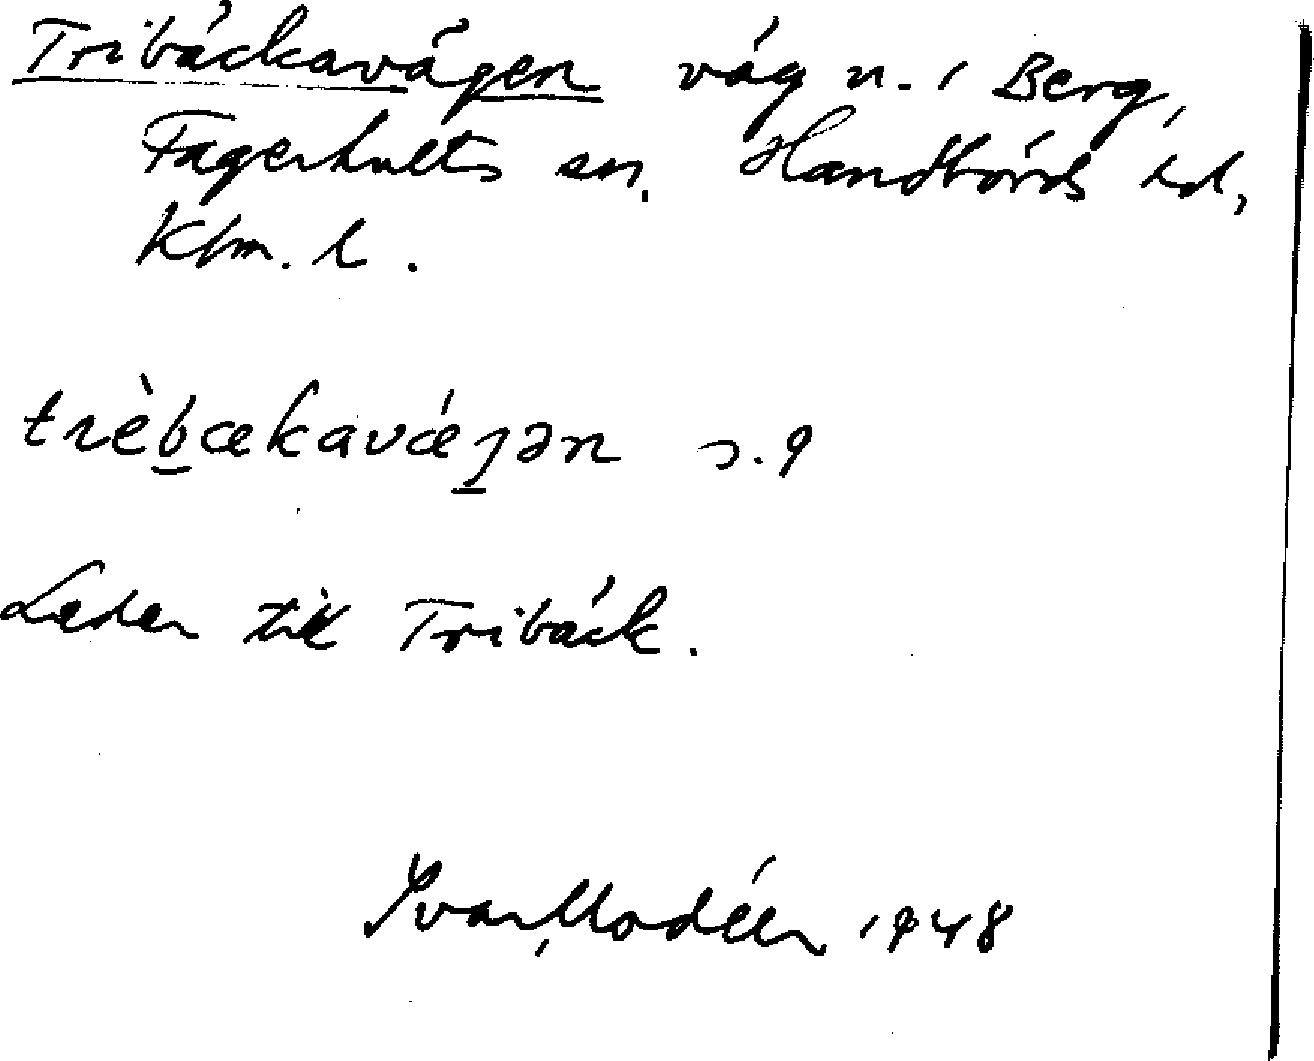 Tribäckavägen väg n. i Berg,
Fagerhults sn. Handbörds hd,
Klm. l.
trèbækavǽʒən s. 9
Leder till Tribäck.
Ivar Modéer 1948